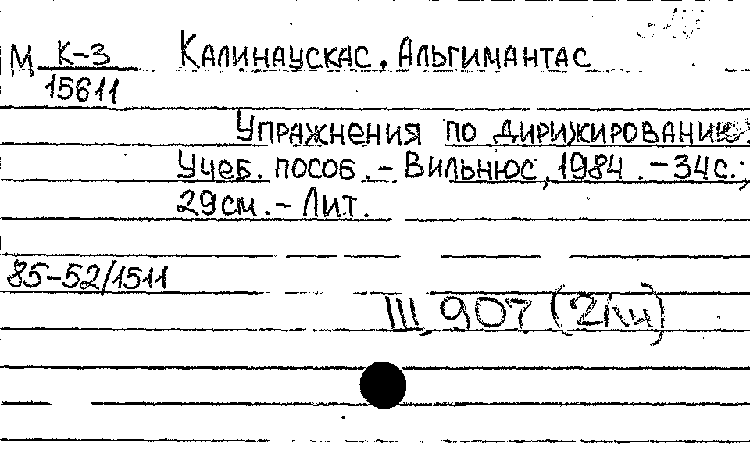 М К-3 Калинаускас. Альгимантас
15611
Упражнения по дирижированию:
Учеб. пособ. - Вильнюс, 1984. - 34с.;
29см. - Лит.
85-52/1511
III 907 (2/кн)